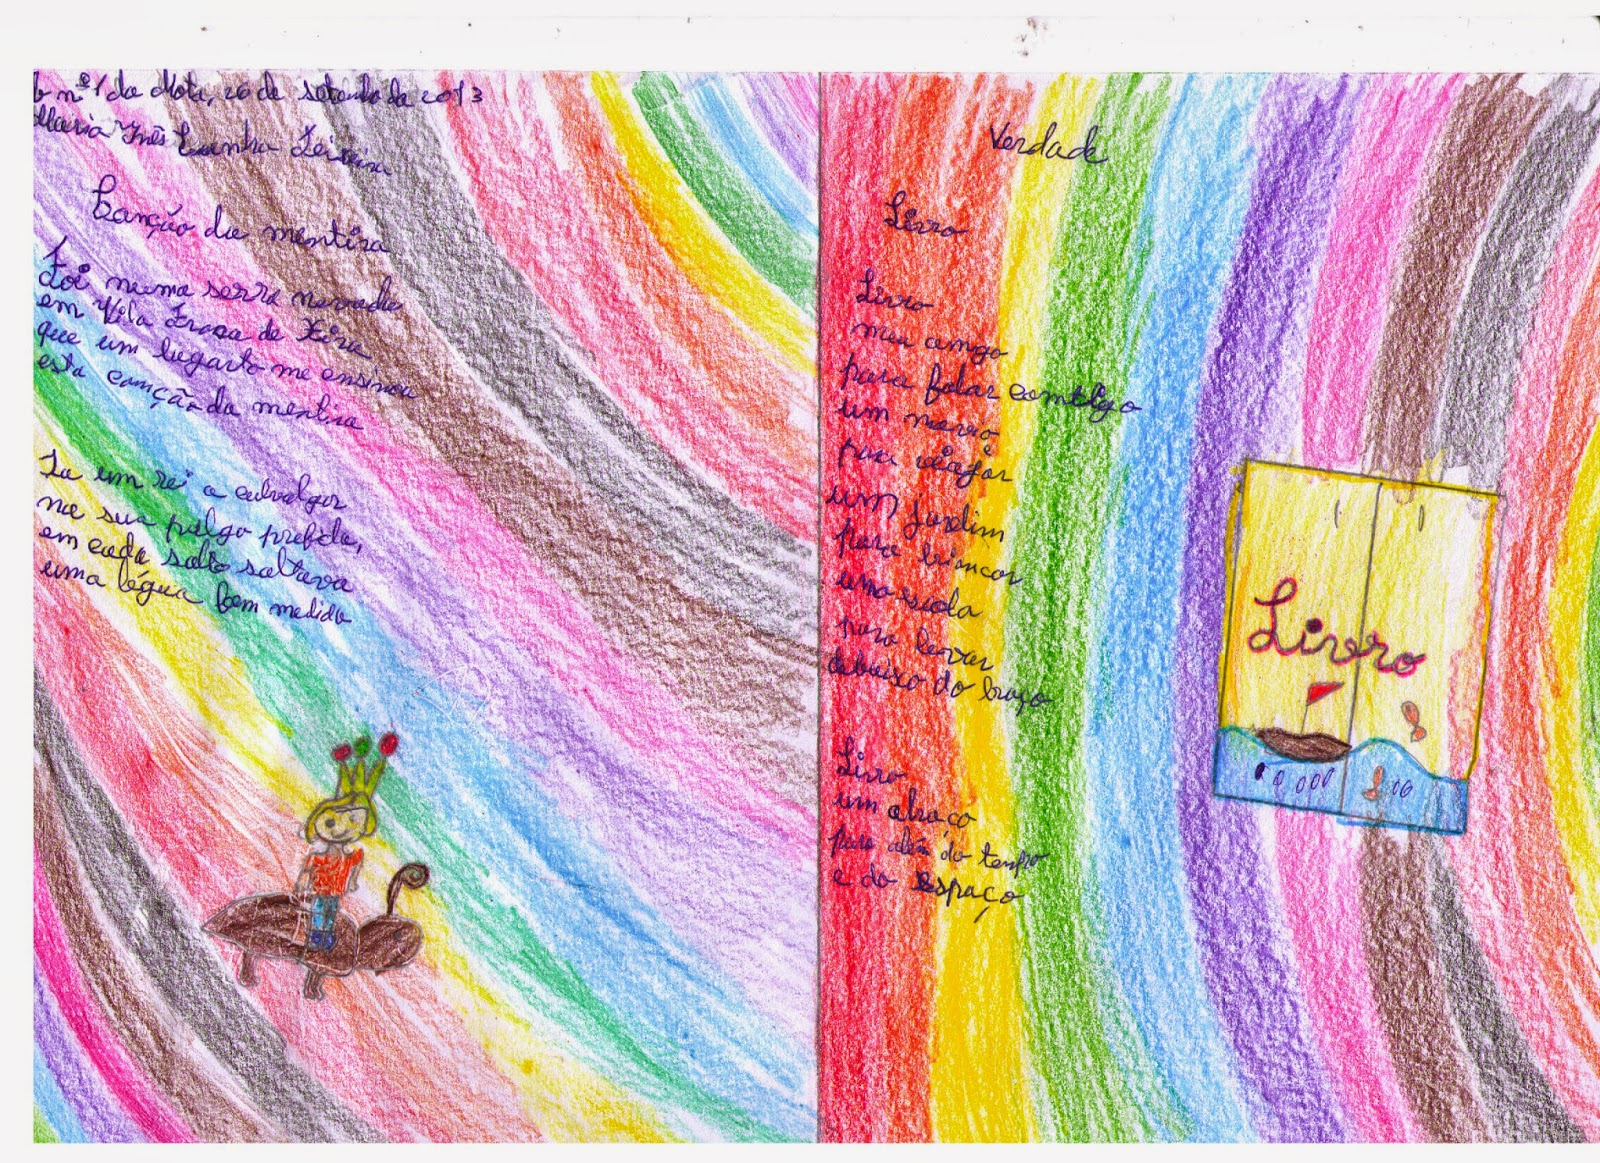 b nº1 da Mota, 26 de setembro de 2013
Maria Inês Cunha Teixeira
Canção da mentira
Foi numa serra nevada
em Vila Franca de Xira
que um lagarto me ensinou
esta canção da mentira
Ia um rei a cavalgar
na sua pulga
em cada salto saltava
uma légua bem medida
Verdade
Livro
Livro
meu amigo
para falar comtigo
um navio
para viajar
um jardim
para brincar
uma escola
para levar
debaixo do braço
Livro
um abraço
para além do tempo
e do espaço
Livro